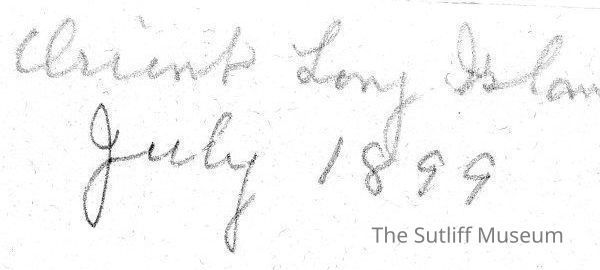 Orient Long Islan
July 1899
The Sutliff Museum